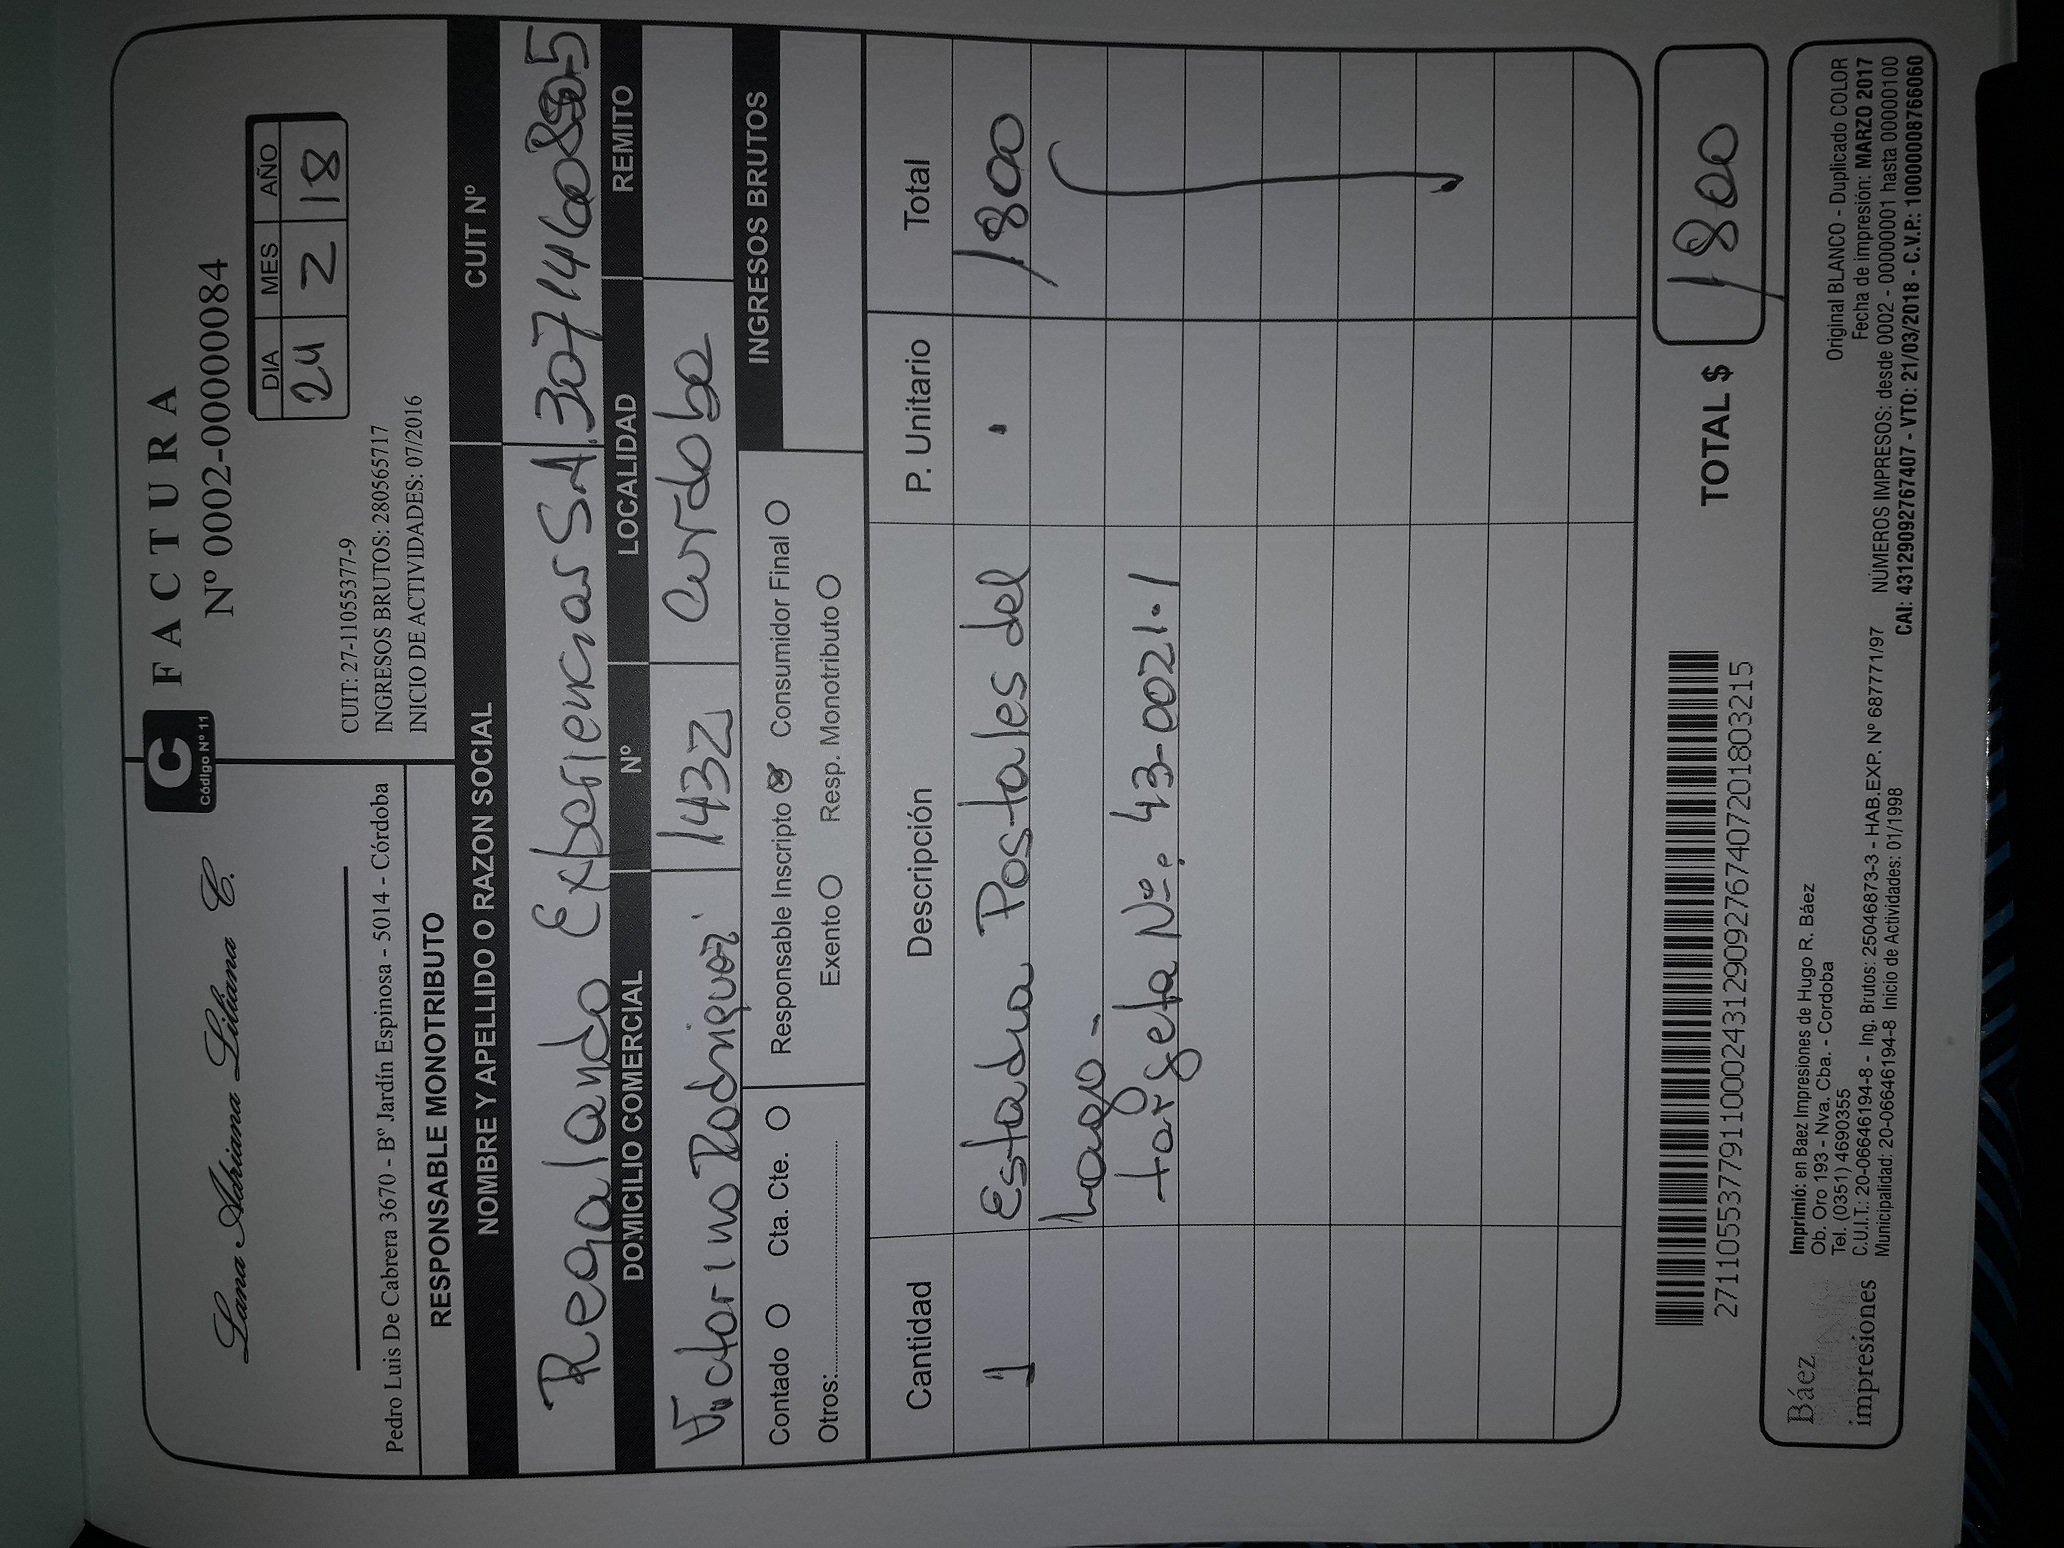 C
Código Nº 11
FACTURA
Nº 0002-00000084
Lana Adriana Liliana C.
DIA MES AÑO
24 2 18
CUIT: 27-11055377-9
INGRESOS BRUTOS: 280565717
INICIO DE ACTIVIDADES: 07/2016
Pedro Luis De Cabrera 3670 - Bº Jardín Espinosa - 5014 - Córdoba
RESPONSABLE MONOTRIBUTO
NOMBRE Y APELLIDO O RAZON SOCIAL CUIT Nº
Regalando Experiencias S.A.
DOMICILIO COMERCIAL Nº LOCALIDAD REMITO
Victorino Rodriguez 1432 Cordoba
Contado Cta. Cte. Responsable Inscripto Consumidor Final INGRESOS BRUTOS
Otros: Exento Resp. Monotributo
Cantidad Descripción P. Unitario Total
1 Estadia Postales del 1800
Lago -
targeta Nº: 43-0021-1
27110553779110002431290927674072018032​15
TOTAL $ 1800
Báez
impresiones
Imprimió: en Baez Impresiones de Hugo R. Báez
Ob. Oro 193 - Nva. Cba. - Cordoba
Tel. (0351) 4690355
C.U.I.T.: 20-06646194-8 - Ing. Brutos: 25046873-3 - HAB.EXP. Nº 687771/97
Municipalidad: 20-06646194-8 Inicio de Actividades: 01/1998
Original BLANCO - Duplicado COLOR
Fecha de impresión: MARZO 2017
NÚMEROS IMPRESOS: desde 0002 - 00000001 hasta 00000100
CAI: 43129092767407 - VTO: 21/03/2018 - C.V.P.: 10000008766060